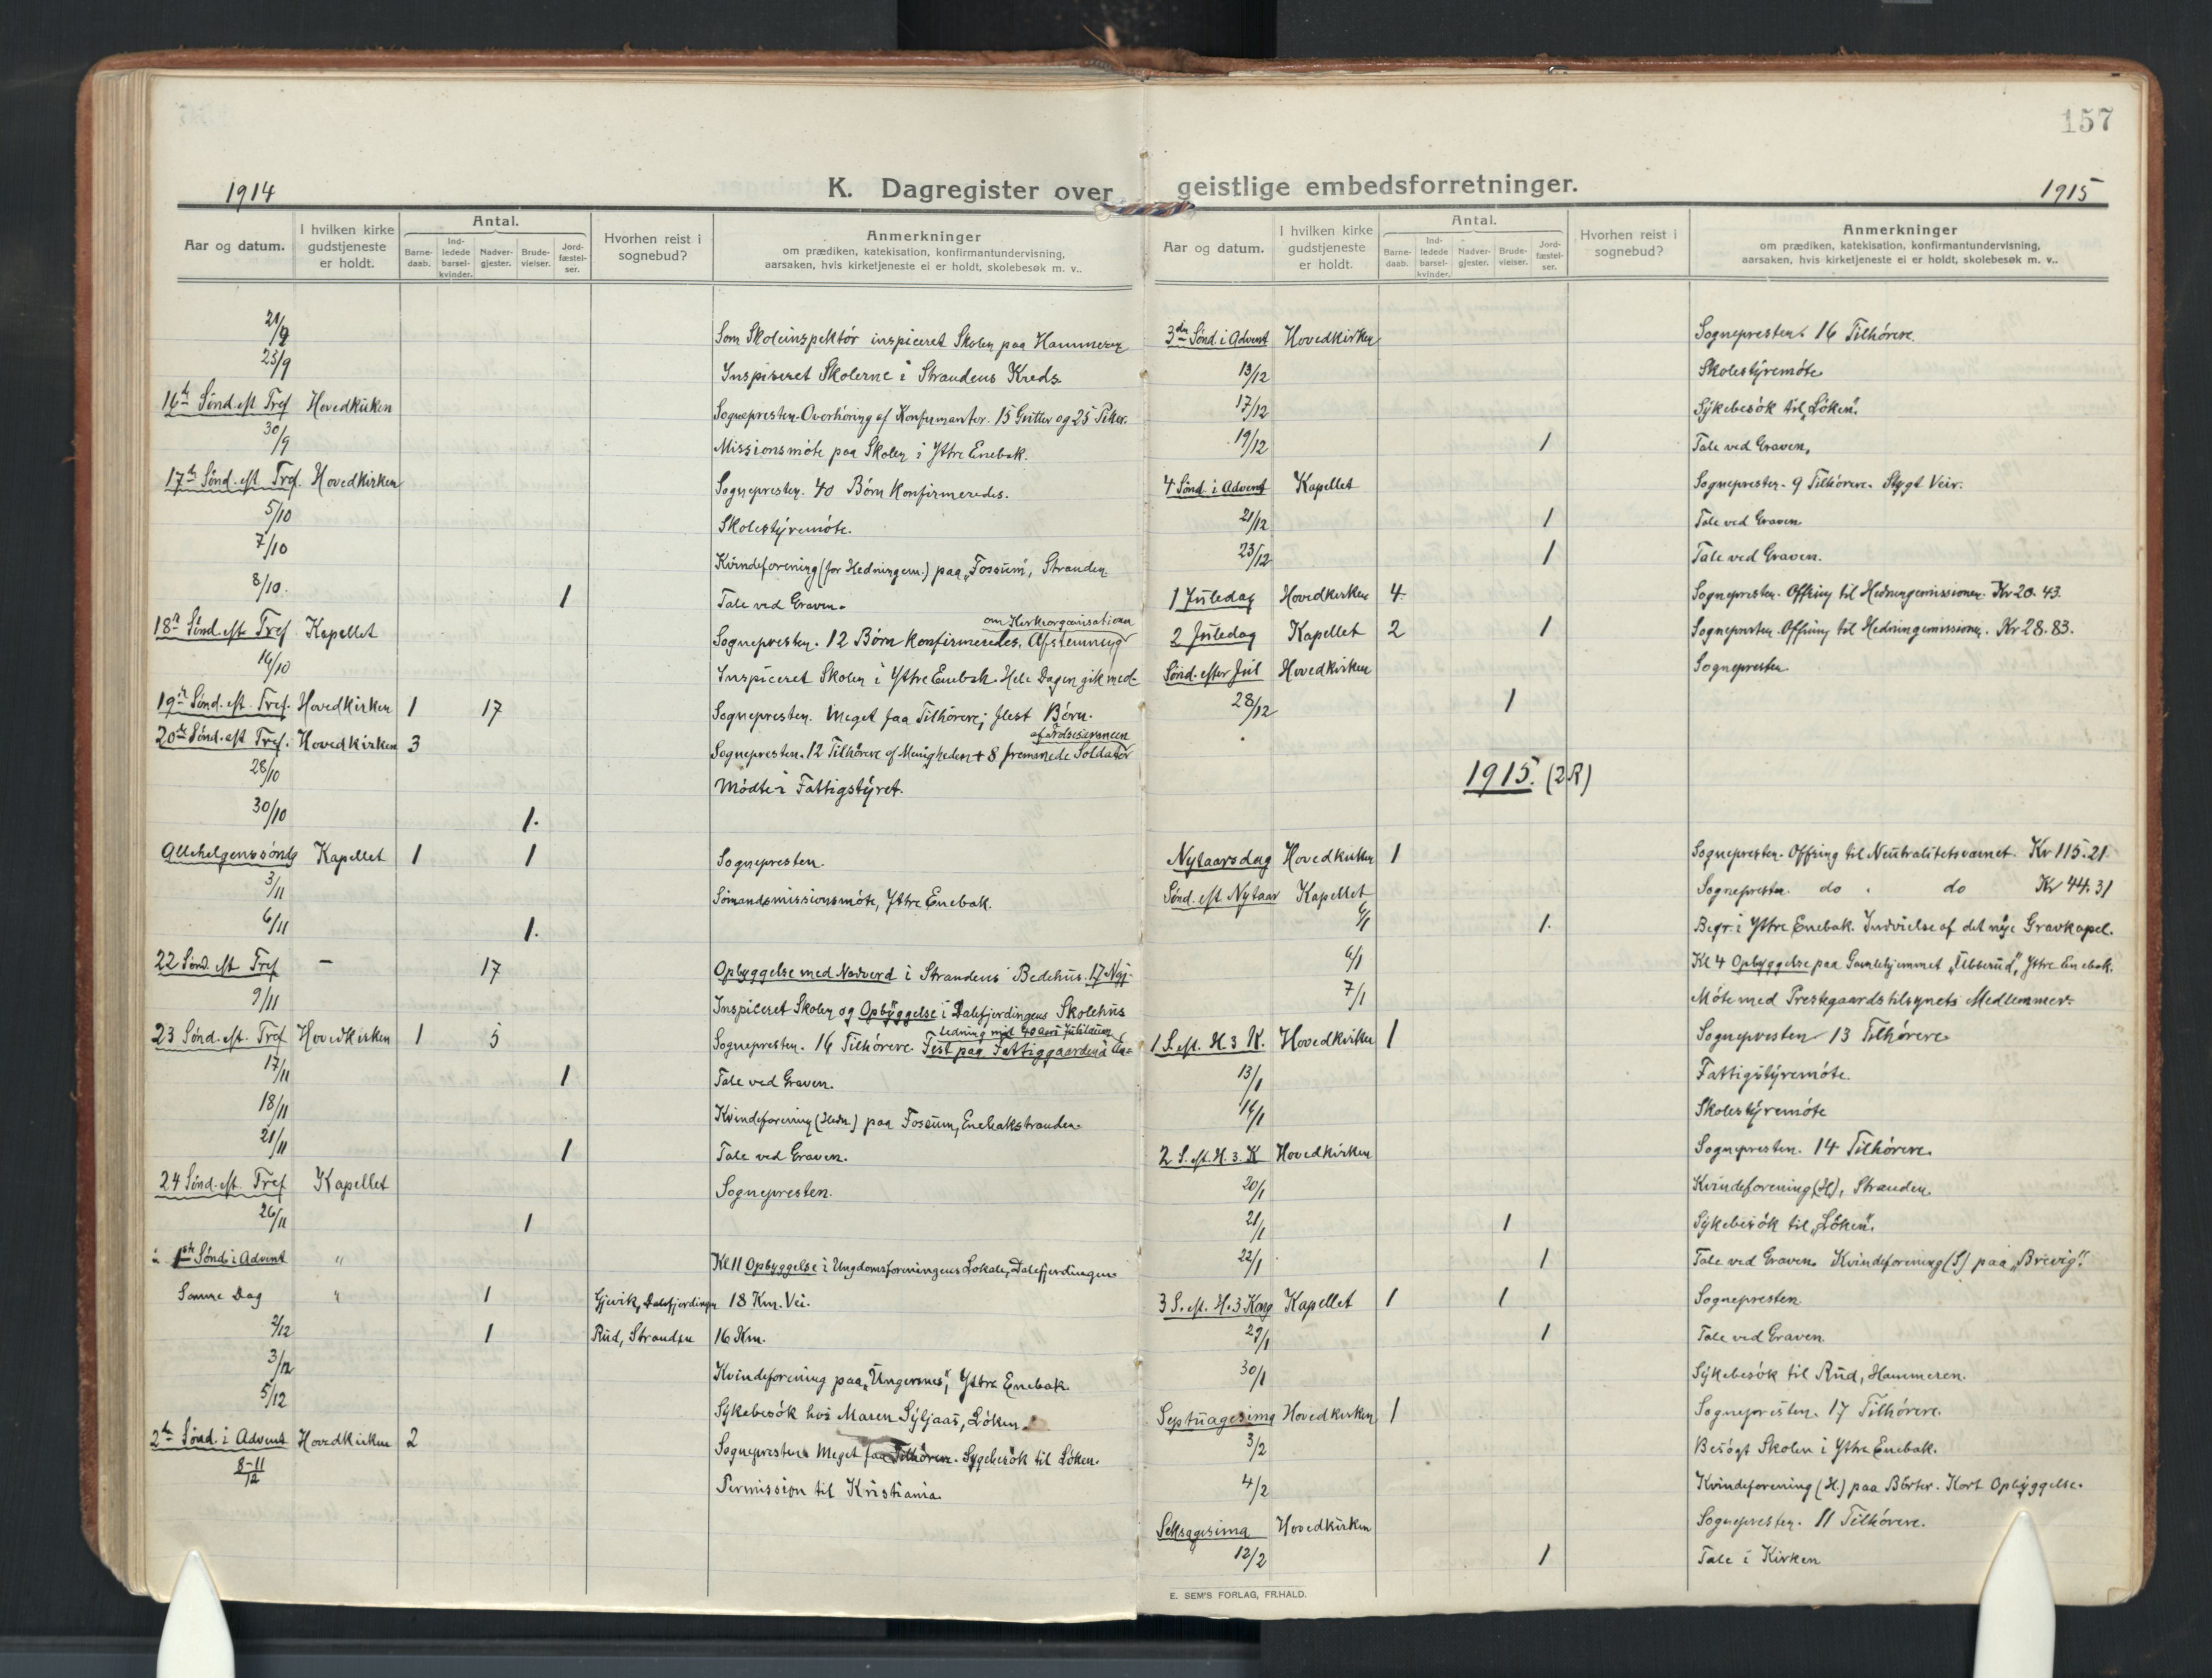 157
1914
K. Dagregister over geistlige embedsforretninger.
1915
Aar og datum. I hvilken kirke gudstjeneste er holdt. Antal. Barnedaab. Indledede barselkvinder. Nadvergjester. Brudevielser. Jordfæstelser. Hvorhen reist i sognebud? Anmerkninger om prædiken, katekisation, konfirmantundervisning, aarsaken, hvis kirketjeneste ei er holdt, skolebesøk m. v..
21/9 Som Skoleinspektør inspiceret Skolen paa Hammeren
23/9 Inspiceret Skolerne i Strandens Kreds
16de Sønd. eft Tref Hovedkirken Sognepresten. Overhøring af Konfirmanter. 15 Gutter og 25 Piker.
30/9 Missionsmøte paa Skolen i Ytre Enebak.
17de Sønd. eft. Tref. Hovedkirken Sognepresten. 40 Børn konfirmeredes.
5/10 Skolestyremøte.
7/10 Kvindeforening (for Hedningem.) paa „Fossum", Stranden
8/10. 1 Tale ved Graven.
18de Sønd. eft. Tref. Kapellet Sognepresten. 12 Børn konfirmeredes. Afstemning om Kirkeorganisationen
14/10 Inspiceret Skolen i Ytre Enebak. Hele Dagen gik med
19de Sønd. eft. Tref. Hovedkirken 1 17 Sognepresten. Meget faa Tilhørere; flest Børn.
20de Sønd. eft Tref. Hovedkirken 3 Sognepresten. 12 Tilhørere af Menigheden + 8 fremmede Soldater
28/10 Mødte i Fattigstyret.
30/10 1.
Allehelgenssøndg Kapellet 1 1 Sognepresten.
3/11 Sømandsmissionsmøte, Ytre Enebak.
6/11 1.
22 Sønd. eft Tref — 17 Opbyggelse med Nadverd i Strandens Bedehus. 17 Ngj.
9/11 Inspiceret Skolen og Opbyggelse i Dalefjerdingens Skolehus
23 Sønd. eft. Tref Hovedkirken 1 5 Sognepresten. 16 Tilhørere. Fest paa Fattiggaarden i
17/11 1 Tale ved Graven.
18/11 Kvindeforening (Hedn.) paa Fossum, Enebakstranden.
21/11 1 Tale ved Graven.
24 Sønd. eft. Tref Kapellet Sognepresten.
26/11 1
1ste Sønd. i Advent " Kl 11 Opbyggelse i Ungdomsforeningens Lokale, Dalefjerdingen
Samme Dag " 1 Gjevik, Dalefjerdingen 18 Km. Vei.
2/12 1 Rud, Stranden 16 Km.
3/12 Kvindeforening paa „Ungersnes", Ytre Enebak.
5/12 Sykebesøk hos Maren Syljaas, Løken.
2de Sønd. i Advent Hovedkirken 2 Sognepresten. Meget faa Tilhørere. Sygebesøk til Løken.
8-11/12 Permission til Kristiania.
Aar og datum. I hvilken kirke gudstjeneste er holdt. Antal. Barnedaab. Indledede barselkvinder. Nadvergjester. Brudevielser. Jordfæstelser. Hvorhen reist i sognebud? Anmerkninger om prædiken, katekisation, konfirmantundervisning, aarsaken, hvis kirketjeneste ei er holdt, skolebesøk m. v..
3die Sønd. i Advent Hovedkirken Sognepresten. 16 Tilhørere.
13/12 Skolestyremøte
17/12 Sykebesøk til „Løken".
19/12 1 Tale ved Graven.
4 Sønd. i Advent Kapellet Sognepresten. 9 Tilhørere. Stygt Veir.
21/12 1 Tale ved Graven.
23/12 1 Tale ved Graven.
1 Juledag Hovedkirken 4 Sognepresten. Offring til Hedningemissionen. Kr 20.43.
2 Juledag Kapellet 2 1 Sognepresten. Offring til Hedningemissionen. Kr 28.83.
Sønd. efter Jul Hovedkirken Sognepresten
28/12 1
1915. (2R)
Nytaarsdag Hovedkirken 1 Sognepresten. Offring til Neutralitetsværnet. Kr 115.21.
Sønd. eft Nytaar Kapellet Sognepresten do. do Kr 44.31
6/1 1. Begr. i Ytre Enebak. Indvielse af det nye Gravkapel.
6/1 Kl 4 Opbyggelse paa Gamlehjemmet „Ubberud", Ytre Enebak.
7/1 Møte med Prestegaardstilsynets Medlemmer.
1 S. eft. H. 3 K. Hovedkirken 1 Sognepresten 13 Tilhørere
13/1 Fattigstyremøte.
14/1 Skolestyremøte
2 S. eft. H. 3. K Hovedkirken Sognepresten. 14 Tilhørere.
20/1 Kvindeforening (H), Stranden.
21/1 1 Sykebesøk til „Løken".
22/1 1 Tale ved Graven. Kvindeforening (S) paa „Brevig".
3 S. eft. H. 3 Kong Kapellet 1 1 Sognepresten
29/1 1 Tale ved Graven.
30/1 Sykebesøk til Rud, Hammeren.
Septuagesima Hovedkirken 1 Sognepresten. 17 Tilhørere.
3/2 Besøgt Skolen i Ytre Enebak.
4/2 Kvindeforening (H.) paa Børter. Kort Opbyggelse.
Seksagesima Hovedkirken Sognepresten. 11 Tilhørere.
12/2 1 Tale i Kirken
E. SEM'S FORLAG, FR.HALD.